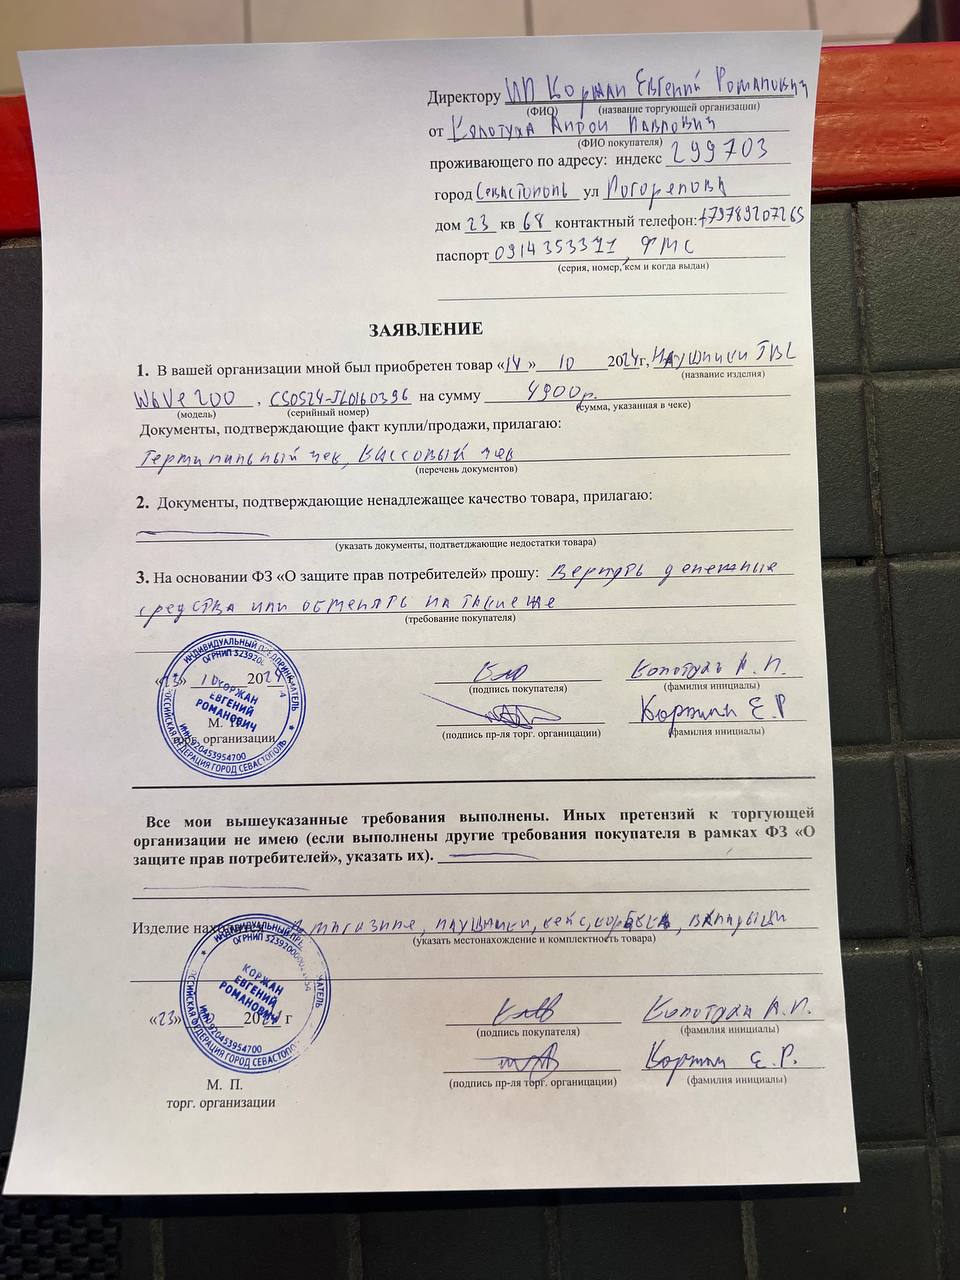 Директору ИП Коржан Евгений Романович
(ФИО) (название торгующей организации)
от Клотуха Антон Павлович
(ФИО покупателя)
проживающего по адресу: индекс 299703
город Севастополь ул
дом 23 кв 68 контактный телефон: +79789207265
паспорт 0914353371, ФМС
(серия, номер, кем и когда выдан)
ЗАЯВЛЕНИЕ
1. В вашей организации мной был приобретен товар «14» 10 2024г, Наушники JBL
(название изделия)
Wave 200, CS0524-JL0160396 на сумму 4900р.
(модель) (серийный номер) (сумма, указанная в чеке)
Документы, подтверждающие факт купли/продажи, прилагаю:
Терминальный чек, кассовый чек
(перечень документов)
2. Документы, подтверждающие ненадлежащее качество товара, прилагаю:
(указать документы, подтветджающие недостатки товара)
3. На основании ФЗ «О защите прав потребителей» прошу: Вернуть денежные
средства или обменять на такие же
(требование покупателя)
ИНДИВИДУАЛЬНЫЙ ПРЕДПРИНИМАТЕЛЬ
КОРЖАН ЕВГЕНИЙ РОМАНОВИЧ
ИНН 920453954700
РОССИЙСКАЯ ФЕДЕРАЦИЯ ГОРОД СЕВАСТОПОЛЬ
«23» 10 2024
М. П.
торг. организации
(подпись покупателя) (фамилия инициалы)
Коржан Е.Р
(подпись пр-ля торг. органицации) (фамилия инициалы)
Все мои вышеуказанные требования выполнены. Иных претензий к торгующей
организации не имею (если выполнены другие требования покупателя в рамках ФЗ «О
защите прав потребителей», указать их).
Изделие находится В магазине, наушники, кейс, коробка, вкладыши
(указать местонахождение и комплектность товара)
КОРЖАН ЕВГЕНИЙ РОМАНОВИЧ
ИНН 920453954700
РОССИЙСКАЯ ФЕДЕРАЦИЯ ГОРОД СЕВАСТОПОЛЬ
«23» 10 2024 г
(подпись покупателя) (фамилия инициалы)
Коржан Е.Р.
(подпись пр-ля торг. органицации) (фамилия инициалы)
М. П.
торг. организации